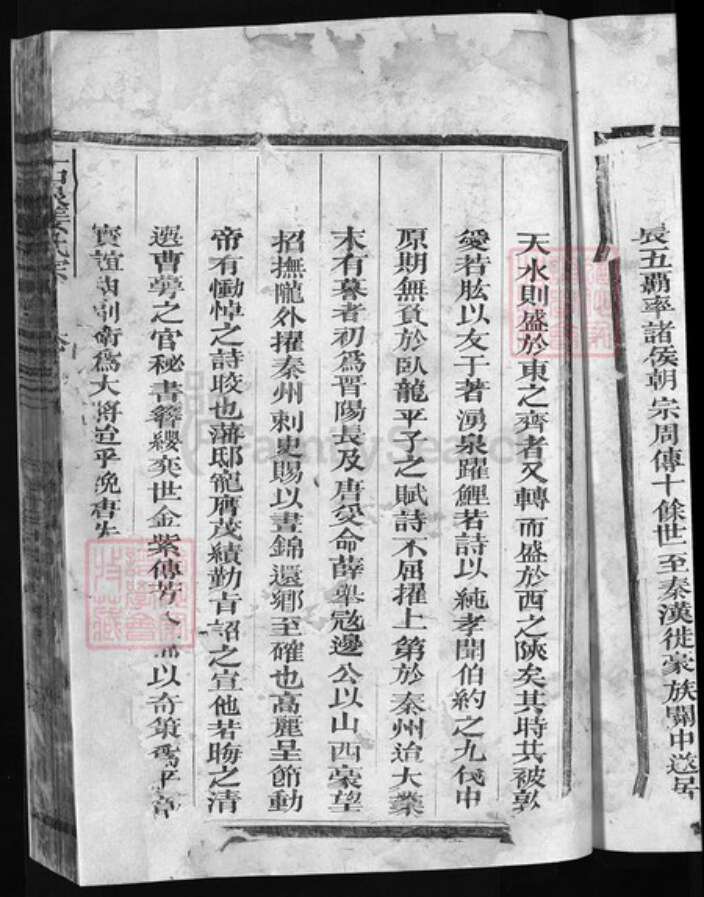 長五霸率諸侯朝宗周傳十餘世一至秦漢徙豪族關中遂居
天水則盛於東之齊者又轉而盛於西之陝矣其時共被敦
愛若肱以友于著湧泉躍鯉若詩以純孝聞伯約之九伐中
原期無負於臥龍平子之賦詩不屈擢上第於秦州迨大業
末有暮者初為晋陽長及唐受命薛舉寇邊公以山西豪望
招撫隴外擢秦州刺史賜以晝錦還鄉至確也高麗呈節動
帝有慟悼之詩晈也藩邸寵膺茂績勤肯詔之宣他若晦之清
選曹勞之官秘書簪纓奕世金紫傳芳 以奇策為平章
寶誼 衛為大將 平晚唐
姜氏宗
FamilySearch